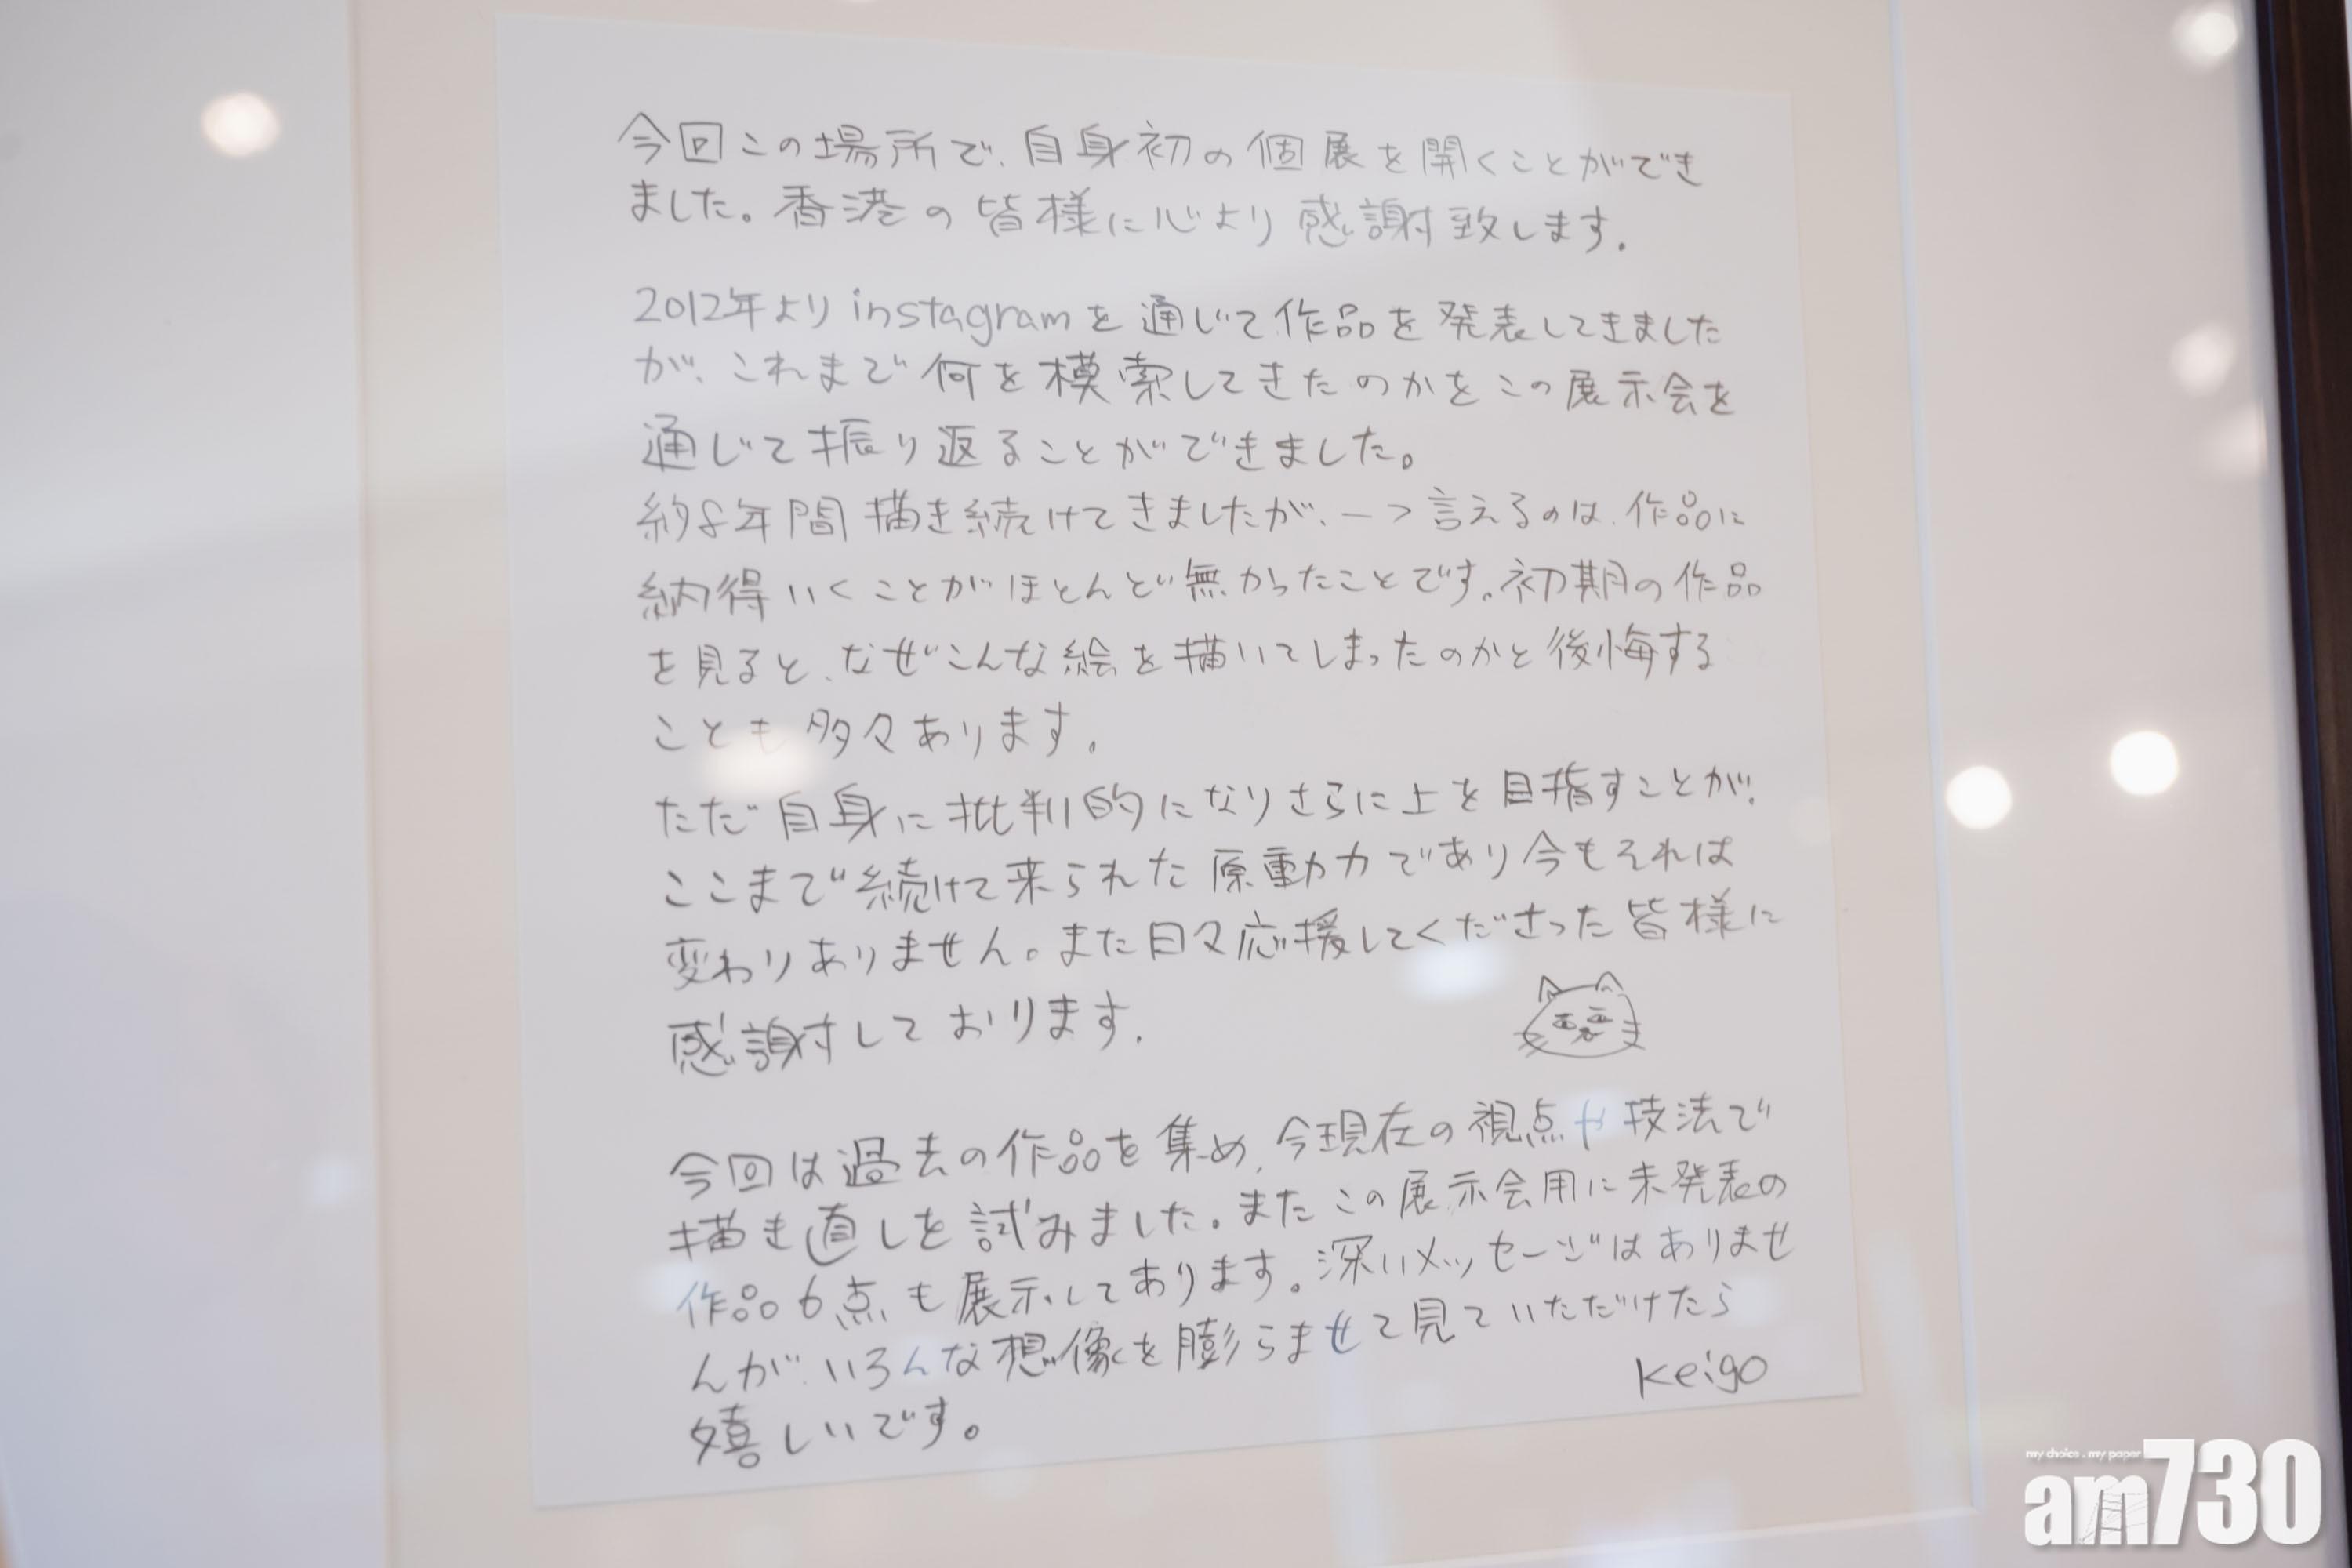 今回この場所で、自身初の個展を開くことができ
ました。香港の皆様に心より感謝致します。
2012年よりinstagramを通じて作品を発表してきました
が、これまで何を模索してきたのかをこの展示会を
通じて振り返ることができました。
約8年間描き続けてきましたが、一つ言えるのは、作品に
納得いくことがほとんど無かったことです。初期の作品
を見ると、なぜこんな絵を描いてしまったのかと後悔する
ことも多々あります。
ただ自身に批判的になりさらに上を目指すことが、
ここまで続けて来られた原動力であり今もそれは
変わりありません。また日々応援してくださった皆様に
感謝しております。
今回は過去の作品を集め、今現在の視点や技法で
描き直しを試みました。またこの展示会用に未発表の
作品6点も展示してあります。深いメッセージはありませ
んが、いろんな想像を膨らませて見ていただけたら
嬉しいです。
Keigo
my choice . my paper
am730